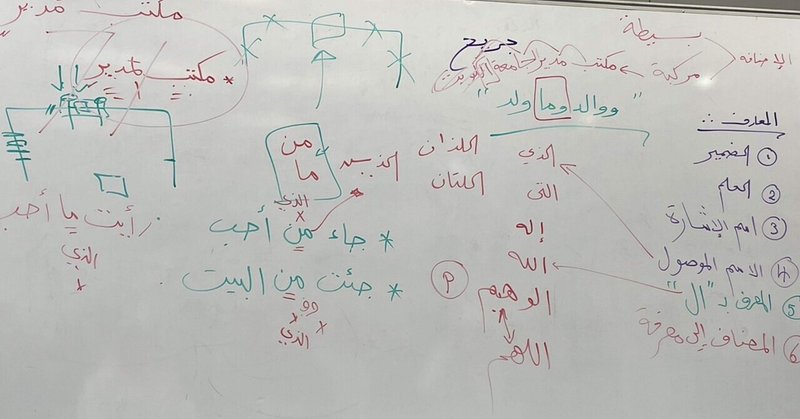 الإضافة
بسيطة
مركبة
مكتب مدير الجامعة
"ووالد وما ولد"
المعارف:
① الضمير
② العلم
③ اسم الإشارة
④ الاسم الموصول
⑤ المعرف بـ "ال"
⑥ المضاف إلى معرفة
الذي
التي
إله
الله
اللذان
اللتان
الذين
من
ما
الذي
* جاء من أحب
* جئت من البيت
الذي
مكتب مدير
* مكتب مدير
رأيت ما أحب
الذي